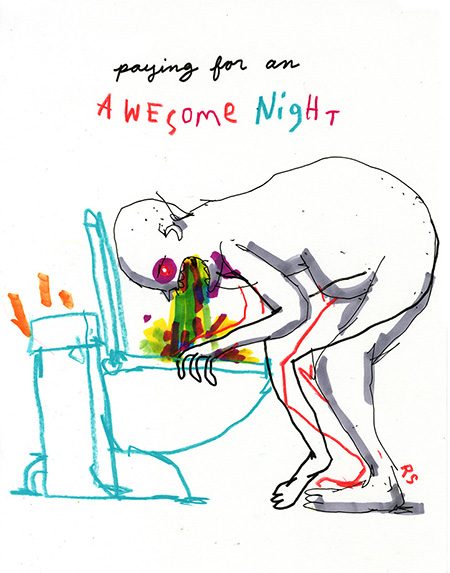 paying for an
AWESOMe NigHT
RS